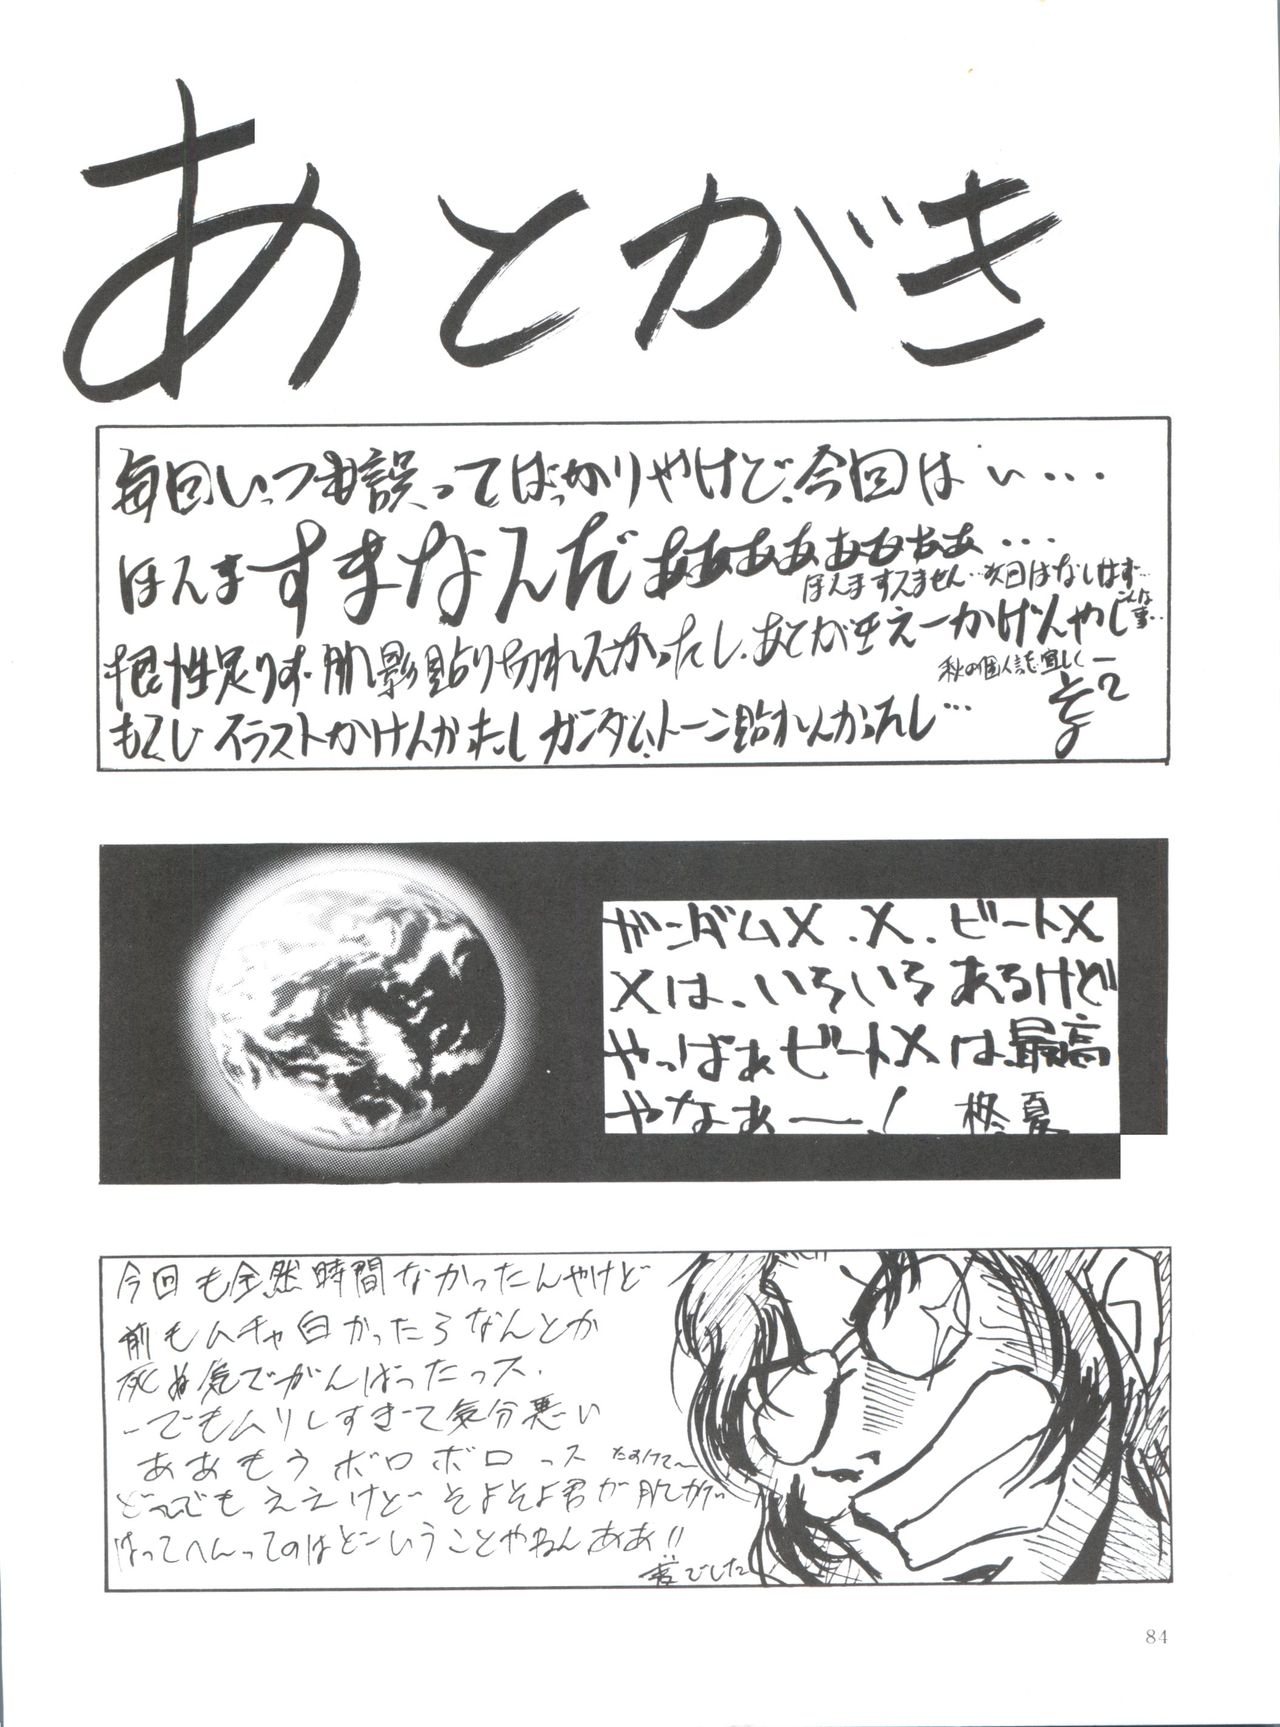 あとがき
毎回いっつも誤ってばっかりやけど、今回はい・・・
ほんますまなんだぁああああああぁ・・・
ほんますんません…次回はなしはず…こんな事…
根性足りず、肌影貼り切れんかったし、あとがきえーかげんやし
秋の個人誌宜しくー
もくじイラストかけんかったしガンダム、トーン貼れんかったし…
ガンダムX、X、ビートX
Xは、いろいろあるけど
やっぱぁビートXは最高
やなぁー!柊夏
今回も全然時間なかったんやけど
前もムチャ白かったろなんとか
死ぬ気でがんばったっス、
ーでもムリしすぎて気分悪い
ああもうボロボロっスたすけて〜
どーでもええけどそよそよ君が肌かげ
はってへんってのはどーいうことやねんああ!!
でした
84